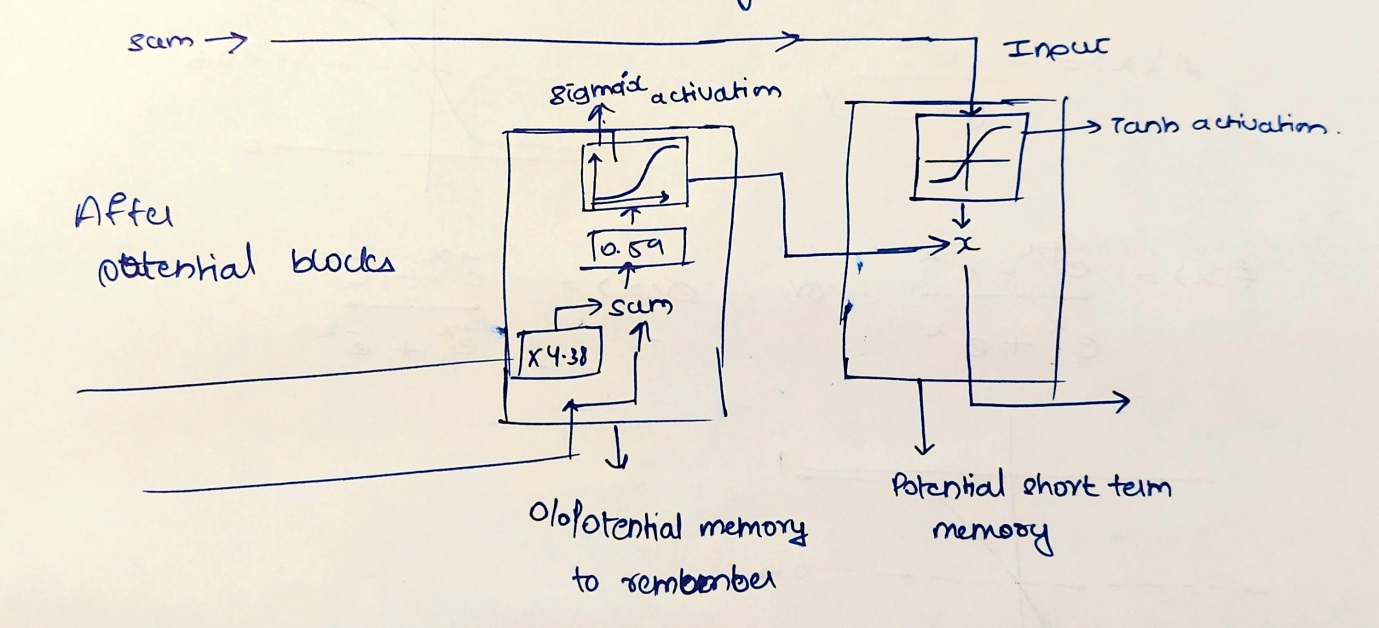 sum →
Input
Sigmoid activation
Tanh activation.
After
potential blocks
0.59
x
sum
x 4.38
% Potential memory
to remember
Potential short term
memory